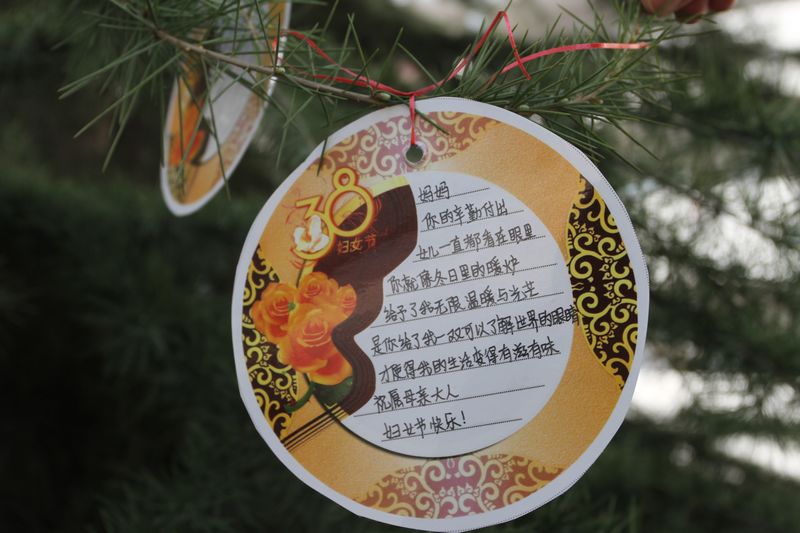 38
妇女节
妈妈
你的辛勤付出
女儿一直都看在眼里
你就像冬日里的暖炉
给予了我无限温暖与光芒
是你给了我一双可以了解世界的眼睛
才使得我的生活变得有滋有味
祝愿母亲大人
妇女节快乐!